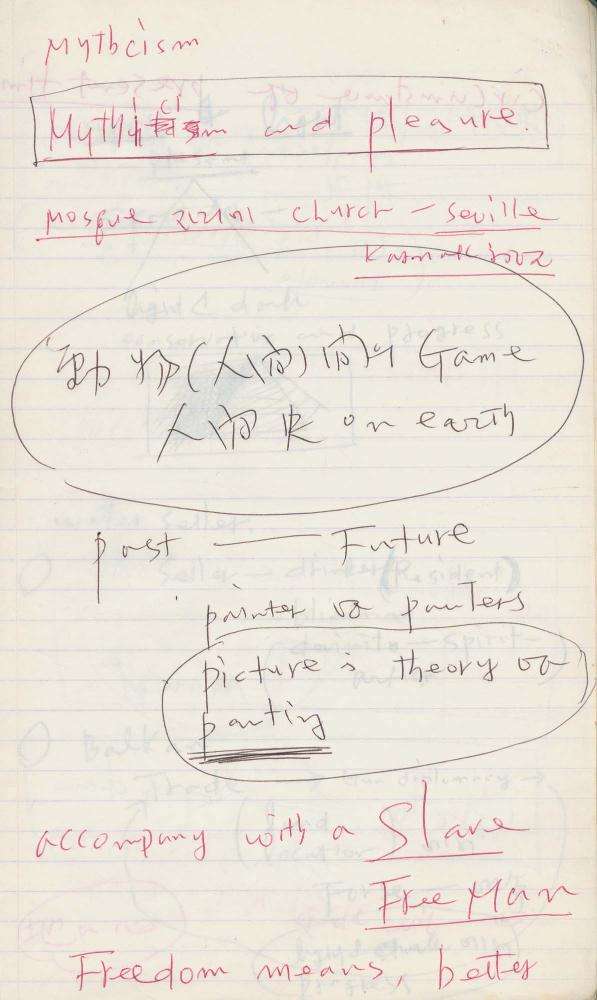 Mythcism
Mythicism and pleasure.
mosque church – Seville
動物(人間)間의 Game
人間史 on earth
past — Future
painter vs painters
picture is theory vs
panting
accompany with a Slave
Free Man
Freedom means, better